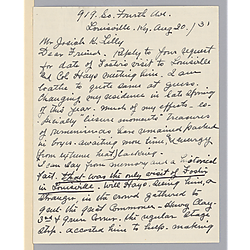 919. So. Fourth Ave.
Louisville. Ky. Aug. 20. / 31
Mr Josiah K. Lilly
Dear Friend. Reply to your request
for date of Foster's visit to Louisville
and Col Hays meeting him. I am
loathe to quote same at guess.
Changing my residence in last spring
of this year. much of my effects. es-
pecially leisure moments treasures
of Reminiscenses have remained packed
in boxes. awaiting more time, &
from extreme heat
I can say from memory and a
fact. that was the only visit of Foster
in Louisville. Will Hays. seeing him, a
stranger, in the crowd gathered to
greet the quiet Commoner - Henry Clay -
3rd & Green Corner. the regular Stage
stop. accosted him to help. making